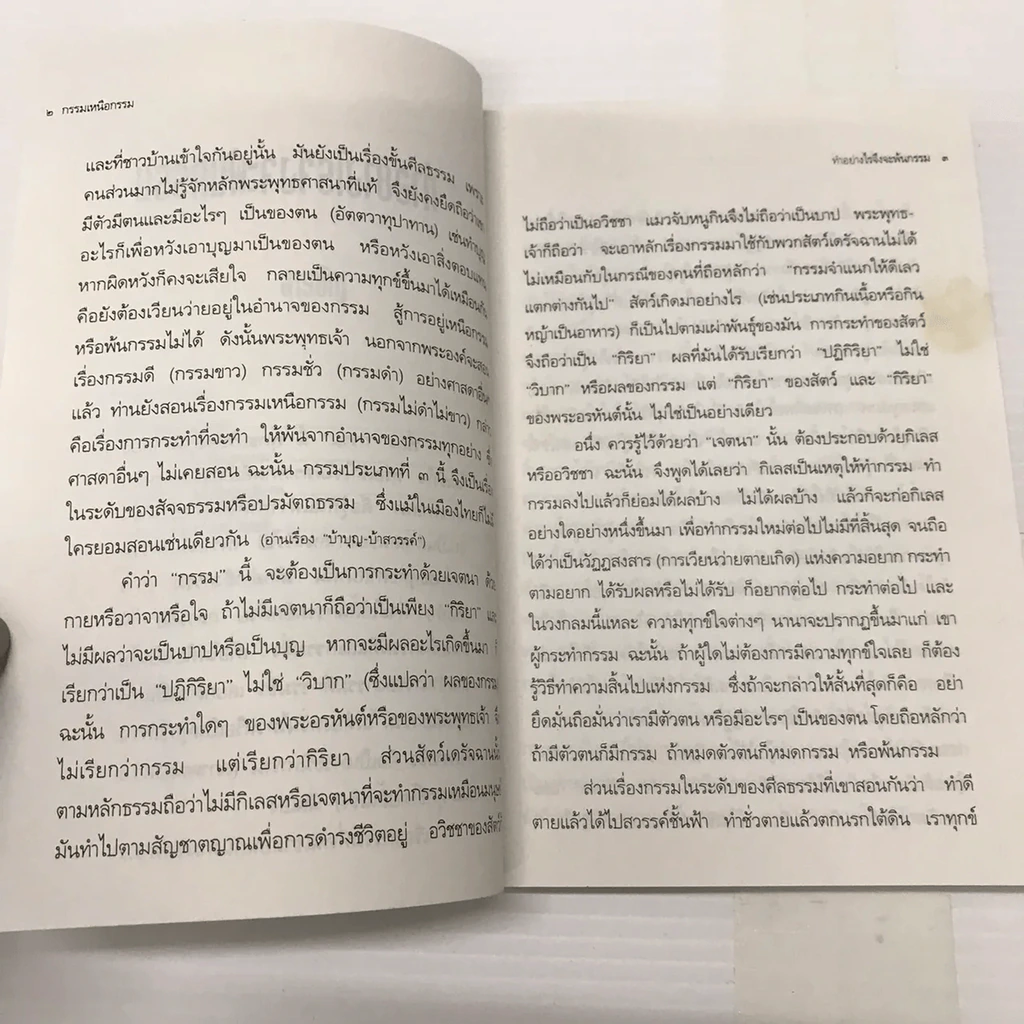 ๒ กรรมเหนือกรรม
และที่ชาวบ้านเข้าใจกันอยู่นั้น มันยังเป็นเรื่องขั้นศีลธรรม เพราะ
คนส่วนมากไม่รู้จักหลักพระพุทธศาสนาที่แท้ จึงยังคงยึดถือว่า
มีตัวมีตนและมีอะไรๆ เป็นของตน (อัตตวาทุปาทาน) เช่นทำบุญ
อะไรก็เพื่อหวังเอาบุญมาเป็นของตน หรือหวังเอาสิ่งตอบแทน
หากผิดหวังก็คงจะเสียใจ กลายเป็นความทุกข์ขึ้นมาได้เหมือนกัน
คือยังต้องเวียนว่ายอยู่ในอำนาจของกรรม สู้การอยู่เหนือกรรม
หรือพ้นกรรมไม่ได้ ดังนั้นพระพุทธเจ้า นอกจากพระองค์จะสอน
เรื่องกรรมดี (กรรมขาว) กรรมชั่ว (กรรมดำ) อย่างศาสดาอื่นๆ
แล้ว ท่านยังสอนเรื่องกรรมเหนือกรรม (กรรมไม่ดำไม่ขาว)
คือเรื่องการกระทำที่จะทำ ให้พ้นจากอำนาจของกรรมทุกอย่าง ซึ่ง
ศาสดาอื่นๆ ไม่เคยสอน ฉะนั้น กรรมประเภทที่ ๓ นี้ จึงเป็นเรื่อง
ในระดับของสัจจธรรมหรือปรมัตถธรรม ซึ่งแม้ในเมืองไทยก็ไม่มี
ใครยอมสอนเช่นเดียวกัน (อ่านเรื่อง "บ้าบุญ-บ้าสวรรค์")
คำว่า "กรรม" นี้ จะต้องเป็นการกระทำด้วยเจตนา ด้วย
กายหรือวาจาหรือใจ ถ้าไม่มีเจตนาก็ถือว่าเป็นเพียง "กิริยา" และ
ไม่มีผลว่าจะเป็นบาปหรือเป็นบุญ หากจะมีผลอะไรเกิดขึ้นมา ก็
เรียกว่าเป็น "ปฏิกิริยา" ไม่ใช่ "วิบาก" (ซึ่งแปลว่า ผลของกรรม
ฉะนั้น การกระทำใดๆ ของพระอรหันต์หรือของพระพุทธเจ้า จึ
ไม่เรียกว่ากรรม แต่เรียกว่ากิริยา ส่วนสัตว์เดรัจฉานนั้น
ตามหลักธรรมถือว่าไม่มีกิเลสหรือเจตนาที่จะทำกรรมเหมือนมนุษย์
มันทำไปตามสัญชาตญาณเพื่อการดำรงชีวิตอยู่ อวิชชาของสัตว์
ทำอย่างไรจึงจะพ้นกรรม ๓
ไม่ถือว่าเป็นอวิชชา แมวจับหนูกินจึงไม่ถือว่าเป็นบาป พระพุทธ-
เจ้าก็ถือว่า จะเอาหลักเรื่องกรรมมาใช้กับพวกสัตว์เดรัจฉานไม่ได้
ไม่เหมือนกับในกรณีของคนที่ถือหลักว่า "กรรมจำแนกให้ดีเลว
แตกต่างกันไป" สัตว์เกิดมาอย่างไร (เช่นประเภทกินเนื้อหรือกิน
หญ้าเป็นอาหาร) ก็เป็นไปตามเผ่าพันธุ์ของมัน การกระทำของสัตว์
จึงถือว่าเป็น "กิริยา" ผลที่มันได้รับเรียกว่า "ปฏิกิริยา" ไม่ใช่
"วิบาก" หรือผลของกรรม แต่ "กิริยา" ของสัตว์ และ "กิริยา"
ของพระอรหันต์นั้น ไม่ใช่เป็นอย่างเดียว
อนึ่ง ควรรู้ไว้ด้วยว่า "เจตนา" นั้น ต้องประกอบด้วยกิเลส
หรืออวิชชา ฉะนั้น จึงพูดได้เลยว่า กิเลสเป็นเหตุให้ทำกรรม ทำ
กรรมลงไปแล้วก็ย่อมได้ผลบ้าง ไม่ได้ผลบ้าง แล้วก็จะก่อกิเลส
อย่างใดอย่างหนึ่งขึ้นมา เพื่อทำกรรมใหม่ต่อไปไม่มีที่สิ้นสุด จนถือ
ได้ว่าเป็นวัฏฏสงสาร (การเวียนว่ายตายเกิด) แห่งความอยาก กระทำ
ตามอยาก ได้รับผลหรือไม่ได้รับ ก็อยากต่อไป กระทำต่อไป และ
ในวงกลมนี้แหละ ความทุกข์ใจต่างๆ นานาจะปรากฏขึ้นมาแก่ เขา
ผู้กระทำกรรม ฉะนั้น ถ้าผู้ใดไม่ต้องการมีความทุกข์ใจเลย ก็ต้อง
รู้วิธีทำความสิ้นไปแห่งกรรม ซึ่งถ้าจะกล่าวให้สั้นที่สุดก็คือ อย่า
ยึดมั่นถือมั่นว่าเรามีตัวตน หรือมีอะไรๆ เป็นของตน โดยถือหลักว่า
ถ้ามีตัวตนก็มีกรรม ถ้าหมดตัวตนก็หมดกรรม หรือพ้นกรรม
ส่วนเรื่องกรรมในระดับของศีลธรรมที่เขาสอนกันว่า ทำดี
ตายแล้วได้ไปสวรรค์ชั้นฟ้า ทำชั่วตายแล้วตกนรกใต้ดิน เราทุกข์